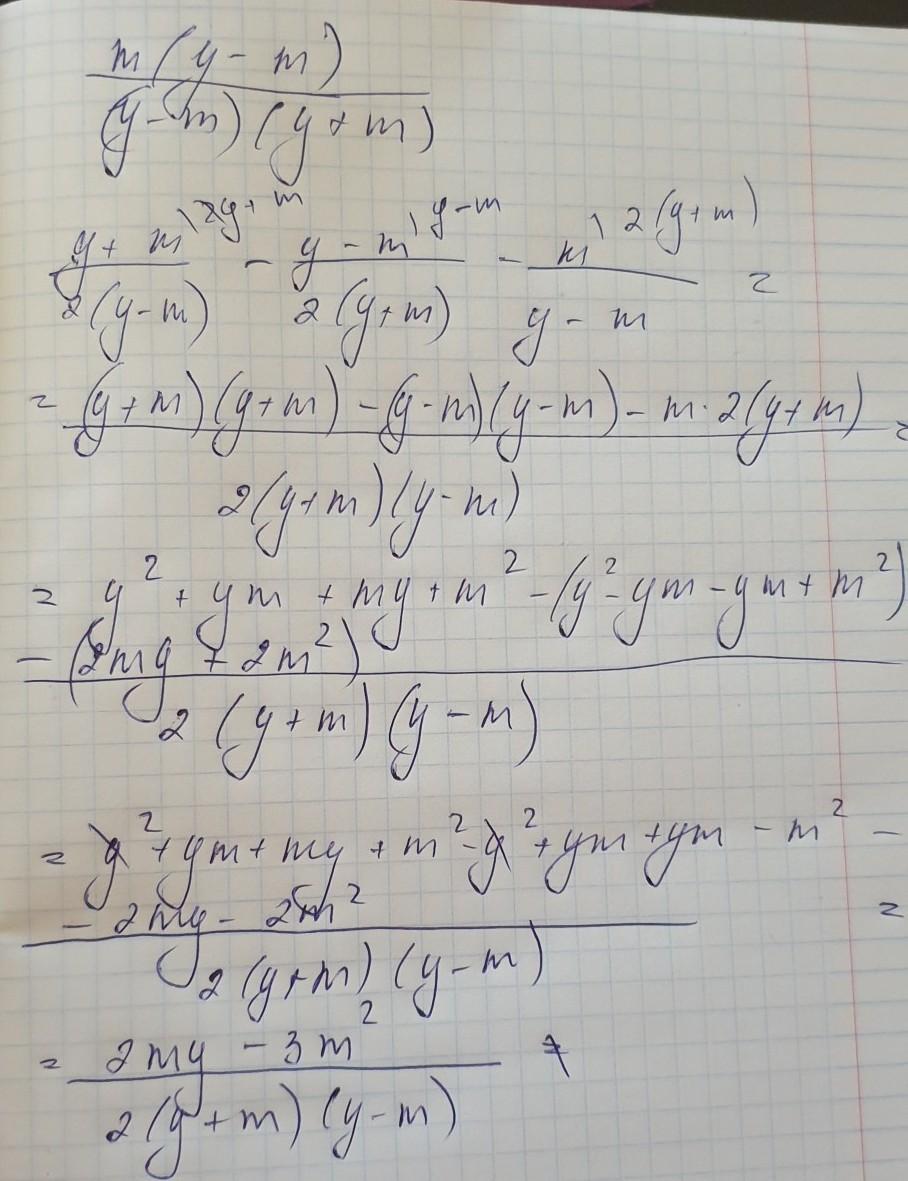 m(y - m)
(y - m)(y + m)
y + m\2y + m - y - m\y - m - m\2(y + m) =
2(y - m) 2(y + m) y - m
= (y + m)(y + m) - (y - m)(y - m) - m · 2(y + m) =
2(y + m)(y - m)
= y² + ym + my + m² - (y² - ym - ym + m²)
- (2my + 2m²)
2(y + m)(y - m)
= y² + ym + my + m² - y² + ym + ym - m² -
- 2my - 2m² =
2(y + m)(y - m)
= 2my - 3m²
2(y + m)(y - m)